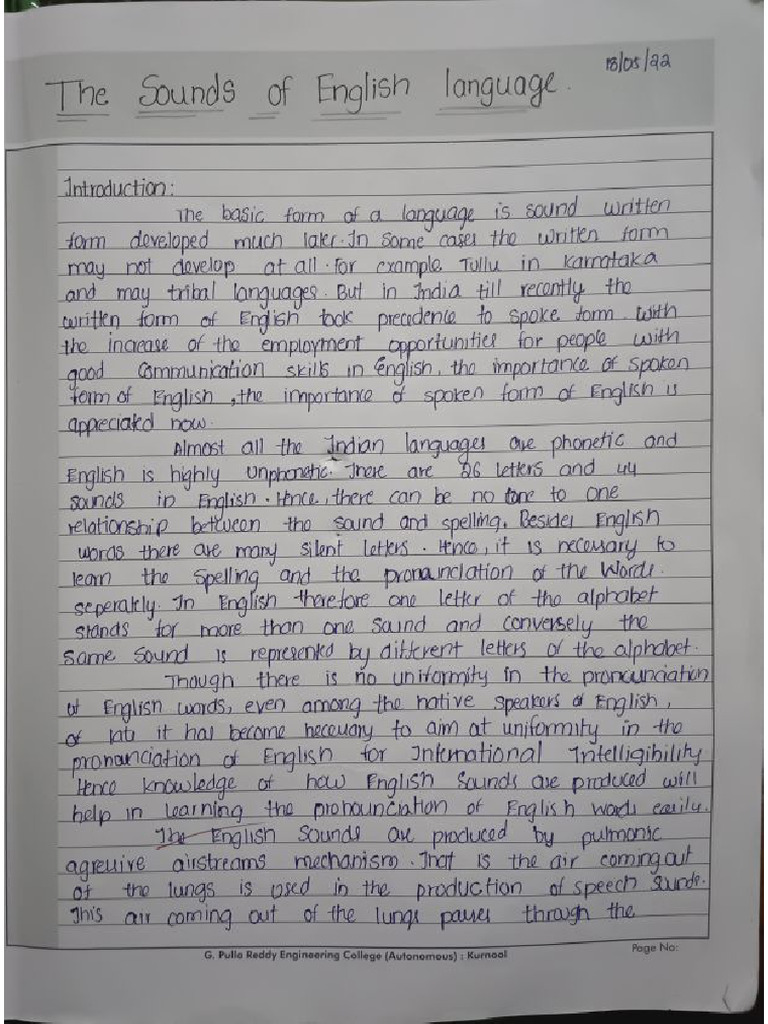 18/05/22
The Sounds of English language.
Introduction:
The basic form of a language is sound written
form developed much later. In some cases the written form
may not develop at all. for example Tullu in Karnataka
and may tribal languages. But in India till recently the
written form of English took precedence to spoke form. with
the increase of the employment opportunities for people with
good Communication skills in English, the importance of spoken
form of English, the importance of spoken form of English is
appreciated now.
Almost all the Indian languages are phonetic and
English is highly unphonetic. There are 26 letters and 44
sounds in English. Hence, there can be no one to one
relationship between the sound and spelling. Besides English
words there are many silent letters. Hence, it is necessary to
learn the Spelling and the pronunciation of the Words.
seperately. In English therefore one letter of the alphabet
stands for more than one sound and conversely the
same sound is represented by different letters of the alphabet.
Though there is no uniformity in the pronounciation
of English words, even among the native speakers of English,
of late it has become necessary to aim at uniformity in the
pronanciation of English for International Intelligibility
Hence knowledge of how English Sounds are produced will
help in learning the pronounciation of English words easily.
The English Sounds are produced by pulmonic
agressive airstreams mechanism. That is the air coming out
of the lungs is used in the production of speech sounds.
This air coming out of the lungs passes through the
G. Pulla Reddy Engineering College (Autonomous) : Kurnool
Page No: